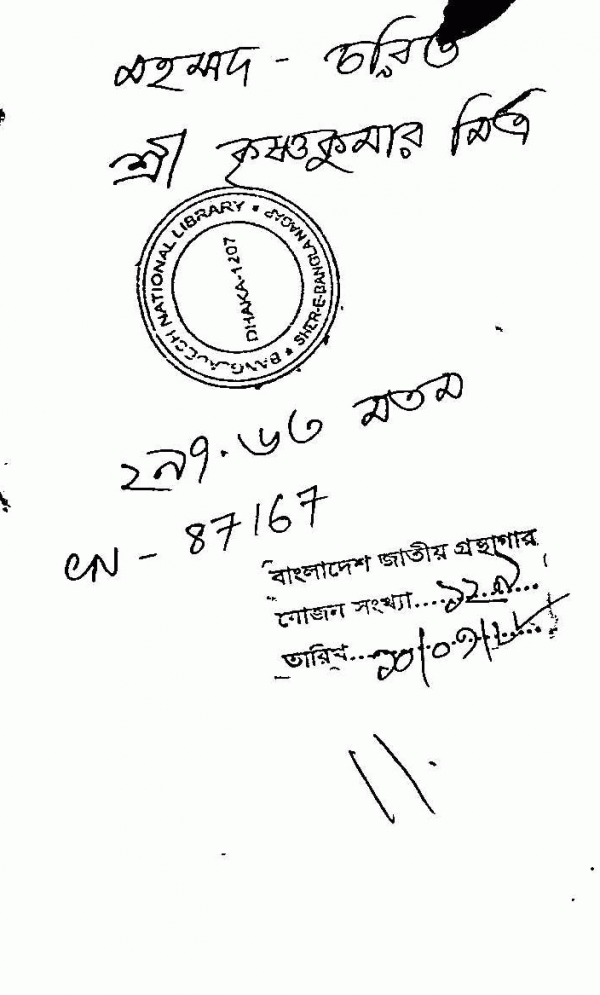 মহম্মদ - চরিত
শ্রী কৃষ্ণকুমার মিত্র
BANGLADESH NATIONAL LIBRARY • SHER-E-BANGLA NAGAR •
DHAKA-1207
২৯৭.৬৩ মতম
87167
বাংলাদেশ জাতীয় গ্রন্থাগার
সংখ্যা....
তারিখ...